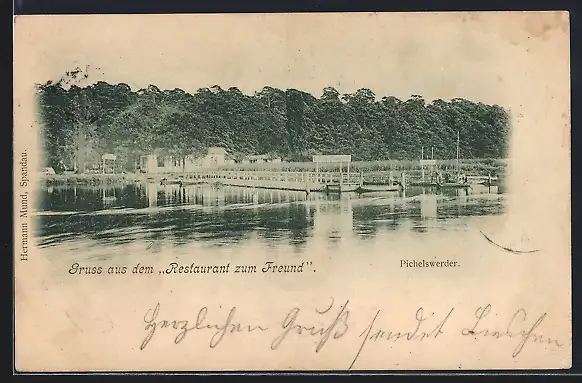 Hermann Mund, Spandau.
Gruss aus dem „Restaurant zum Freund".
Pichelswerder.
Herzlichen Gruß sendet Lieschen